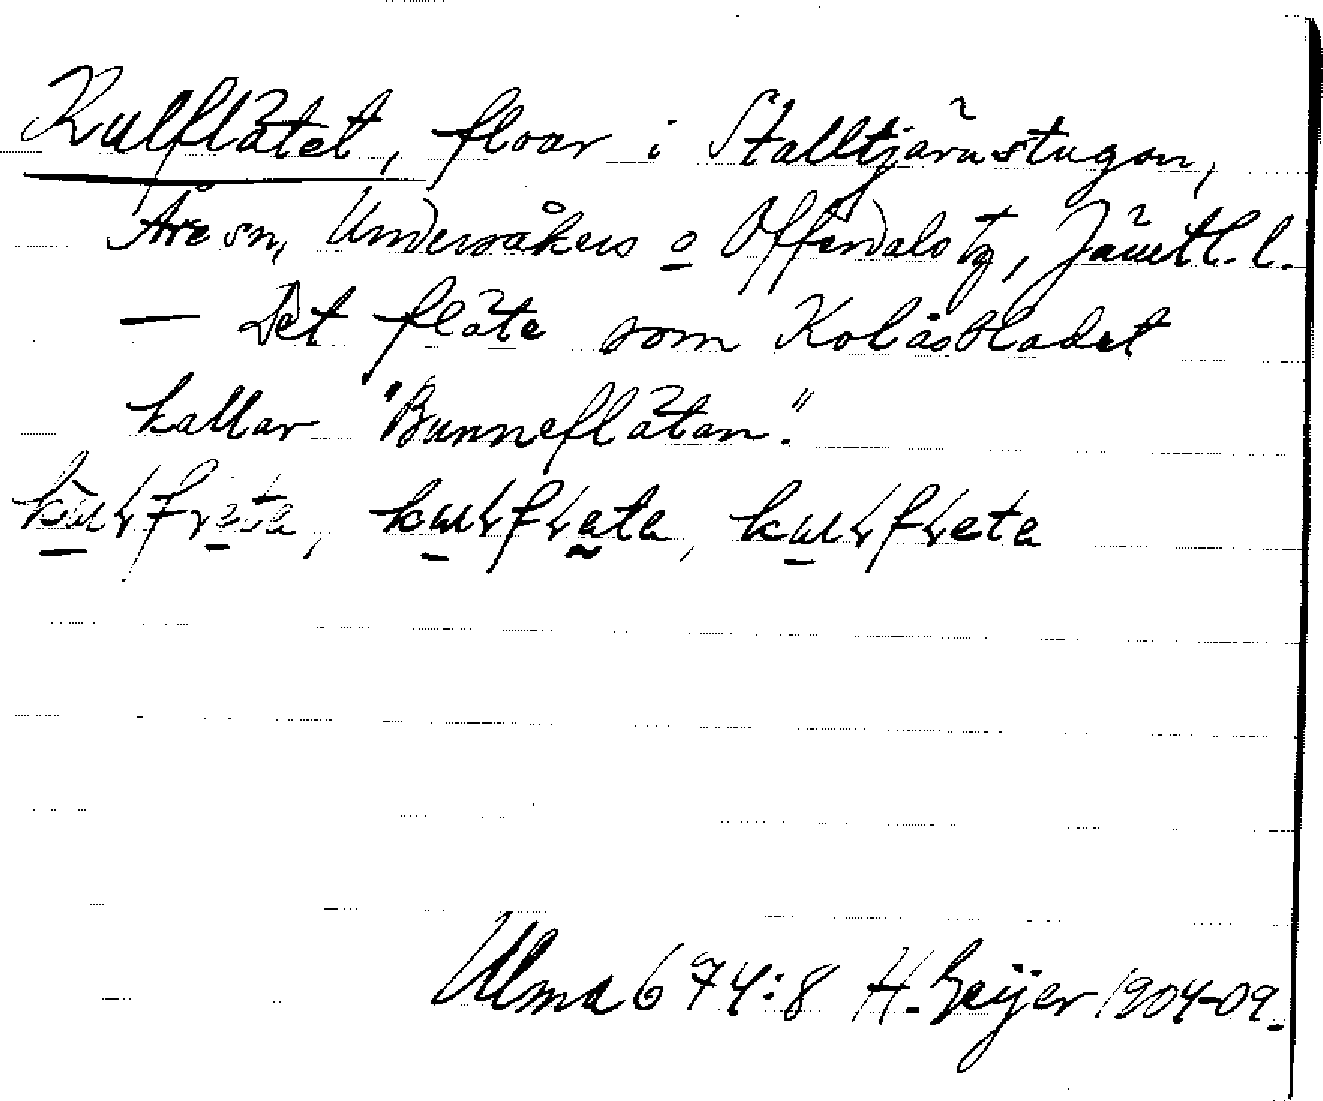 Kulflätet, floar i Stalltjärnstugan,
Åre sn, Undersåkers o Offerdals tg, Jämtl. l.
— Det fläte som Kolåsbladet
kallar "Bunneflätan".
Ulma 674:8 H. Geijer 1904-09.